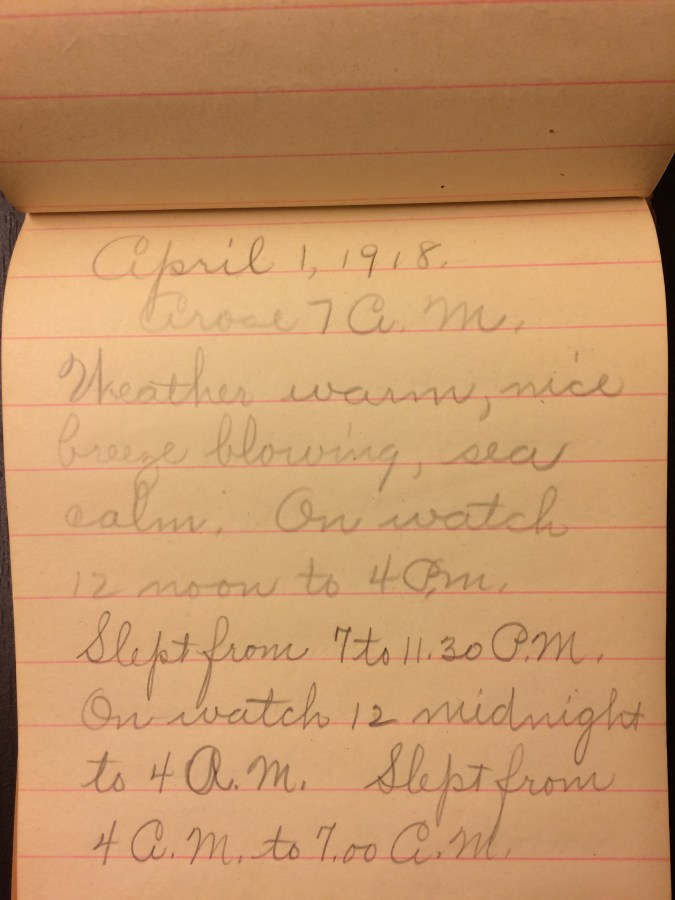 April 1, 1918.
Arose 7 A. M.
Weather warm, nice
breeze blowing, sea
calm. On watch
12 noon to 4 P.m.
Slept from 7 to 11.30 P.M.
On watch 12 midnight
to 4 A.M. Slept from
4 A.M. to 7.00 A.M.